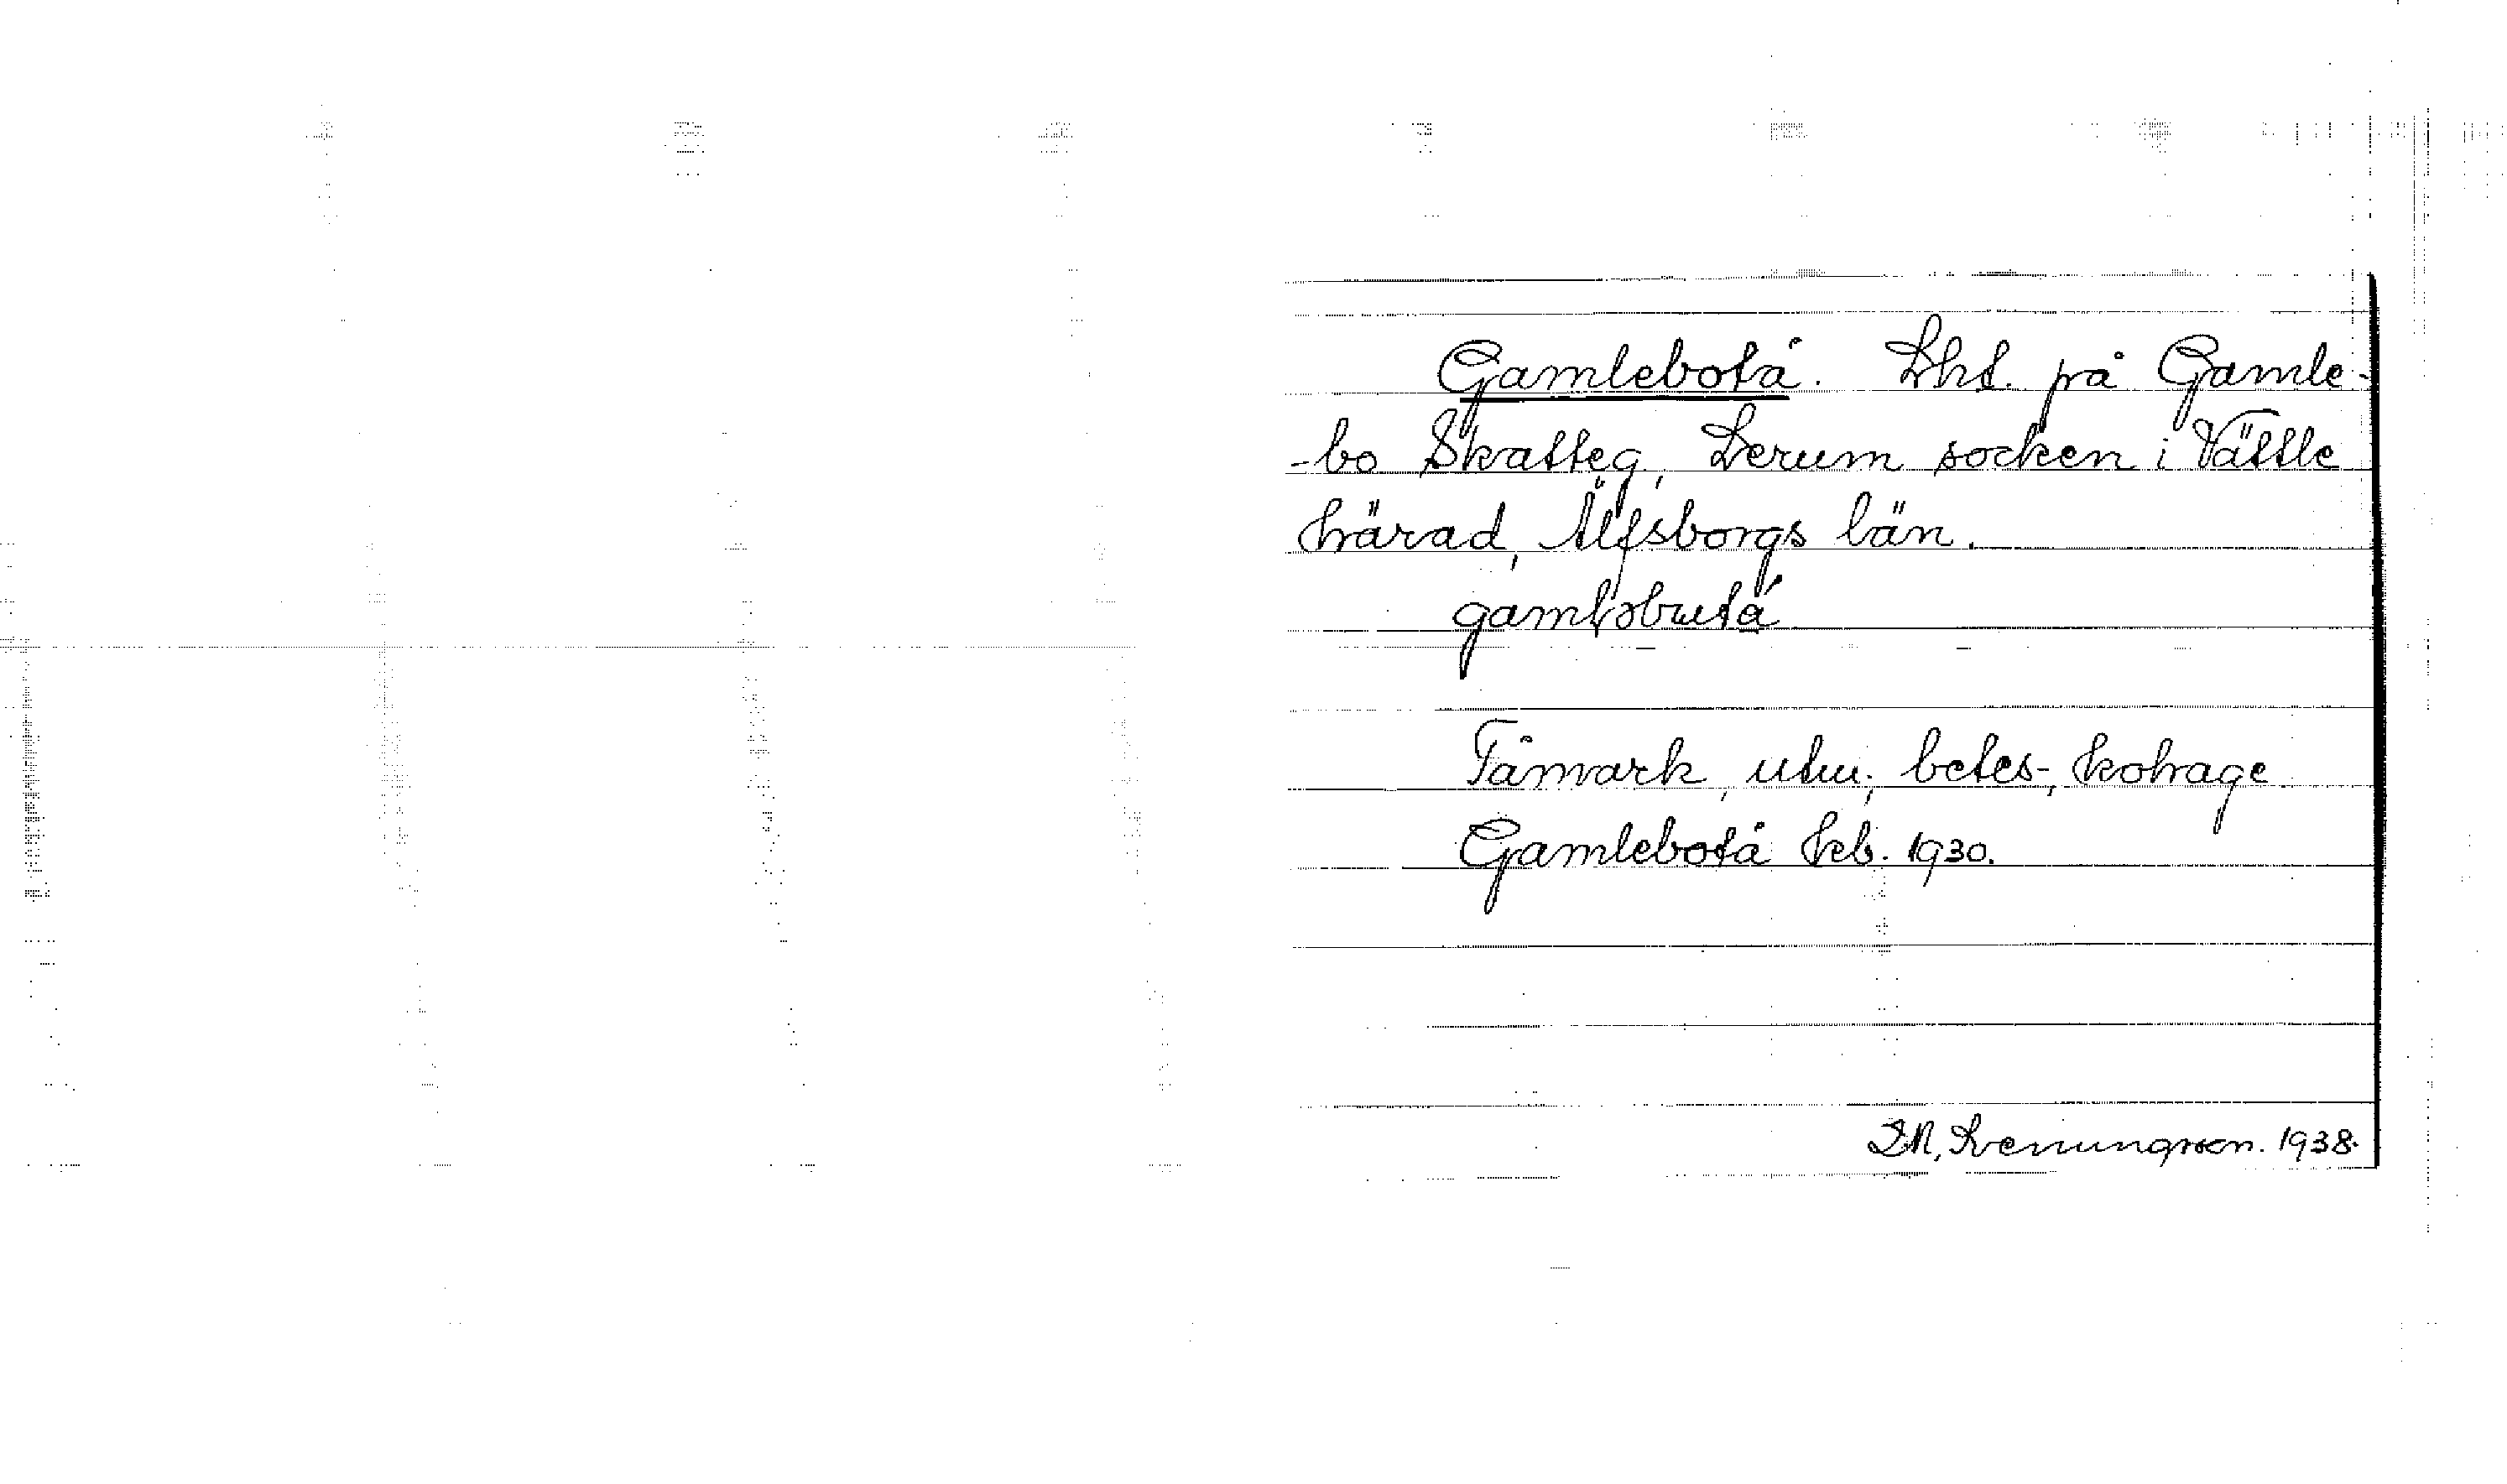 Gamlebotá. Lht. på Gamle-
-bo Skatteg, Lerum socken i Vättle
härad, Älfsborgs län.
Tåmark, utm., betes-, kohage
Gamlebotá heb. 1930.
D.N. Svenungsson. 1938.